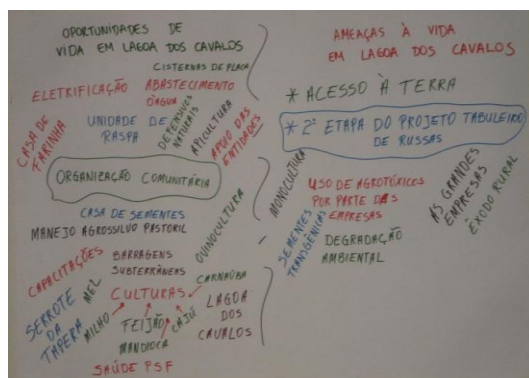 OPORTUNIDADES DE
VIDA EM LAGOA DOS CAVALOS
CISTERNAS DE PLACA
ELETRIFICAÇÃO
ABASTECIMENTO
D'ÁGUA
CASA DE
FARINHA
UNIDADE DE
RASPA
DEFENSIVOS
NATURAIS
APICULTURA
APOIO DAS
ENTIDADES
ORGANIZAÇÃO COMUNITÁRIA
CASA DE SEMENTES
MANEJO AGROSSILVO PASTORIL
OVINOCULTURA
CAPACITAÇÕES
BARRAGENS
SUBTERRÂNEAS
SERROTE
DA
TAPERA
MEL
CULTURAS
CARNAÚBA
MILHO
FEIJÃO
MANDIOCA
CAJÚ
LAGOA
DOS
CAVALOS
SAÚDE PSF
AMEAÇAS À VIDA
EM LAGOA DOS CAVALOS
* ACESSO À TERRA
* 2ª ETAPA DO PROJETO TABULEIRO
DE RUSSAS
MONOCULTURA
USO DE AGROTÓXICOS
POR PARTE DAS
EMPRESAS
SEMENTES
TRANSGÊNICAS
DEGRADAÇÃO
AMBIENTAL
AS GRANDES
EMPRESAS
ÊXODO RURAL